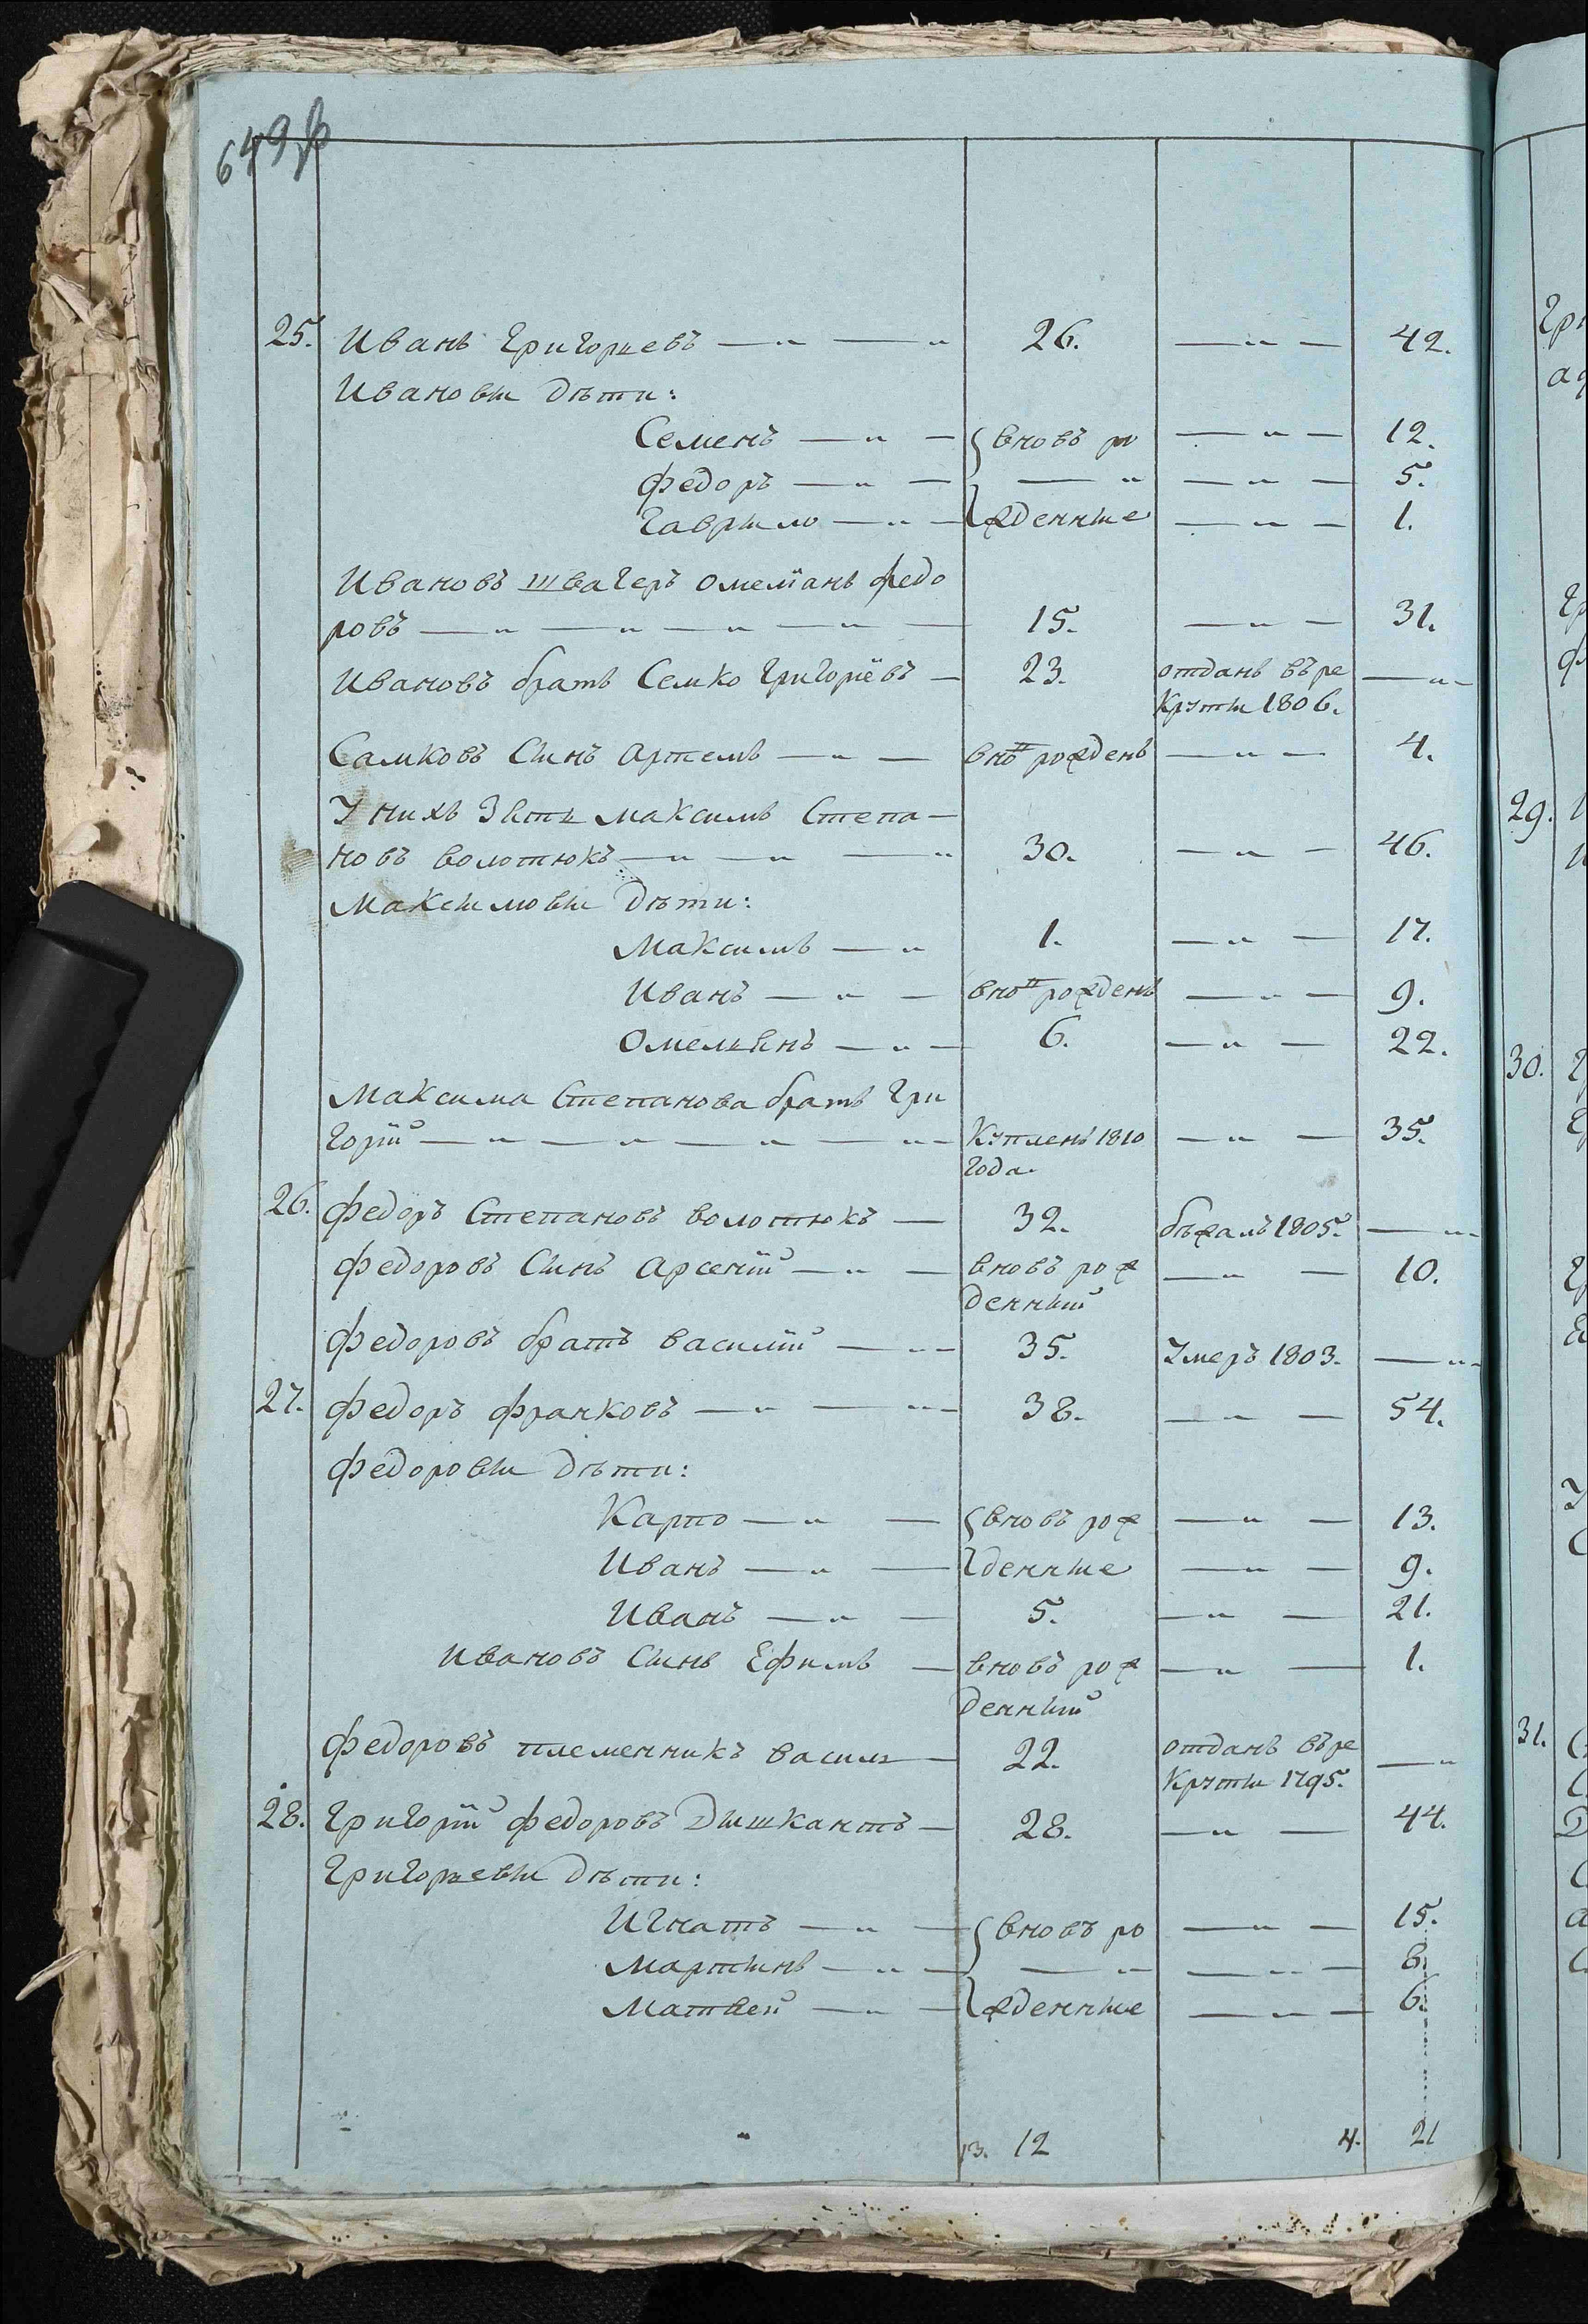 649об
25. Иванъ Григорьевъ — " — " 26. — " — 42.
Ивановы дѣти:
Семенъ — " — вновь ро — " — 12.
Федоръ — " — — " — " — 5.
Гаврыло — " — жденные — " — 1.
Ивановъ швагеръ Омеліанъ Федо
ровъ — " — " — " — " — 15. — " — 31.
Ивановъ братъ Семко Григоріевъ — 23. отданъ въ ре — " —
круты 1806.
Самковъ Сынъ Артемъ — " — вно рожденъ — " — 4.
У нихъ Зять Максимъ Степа —
новъ Волотюкъ — " — " — " 30. — " — 46.
Максымовы дѣти:
Максимъ — " 1. — " — 17.
Иванъ — " — вно рожденъ — " — 9.
Омельянъ — " — 6. — " — 22.
Максима Степанова братъ Гри
горій — " — " — " — " — купленъ 1810 — " — 35.
года.
26. Федоръ Степановъ Волотюкъ — 32. бѣжалъ 1805. — "
Федоровъ Сынъ Арсеній — " — вновь рож — " — 10.
денный
Федоровъ братъ Василій — " — 35. Умеръ 1803. — "
27. Федоръ Франковъ — " — " — 38. — " — 54.
Федоровы дѣти:
Карпо — " — вновь рож — " — 13.
Иванъ — " — денные — " — 9.
Иванъ — " — 5. — " — 21.
Ивановъ Сынъ Ефимъ — вновь рож — " — 1.
денный
Федоровъ племенникъ Василь — 22. отданъ въ ре — "
круты 1795.
28. Григорій Федоровъ Дышкантъ — 28. — " — 44.
Григорьевы дѣти:
Игнатъ — " — вновь ро — " — 15.
Мартынъ — " — — " — " — 8.
Матвей — " — жденные — " — 6.
13. 12 4. 21
29.
30.
31.